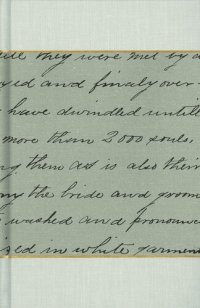 till they were met by a
yed and finaly over
have dwindled untill
more than 2000 souls.
ng them as is also their
ny the bride and groom
washed and pronounce
sed in white garmen